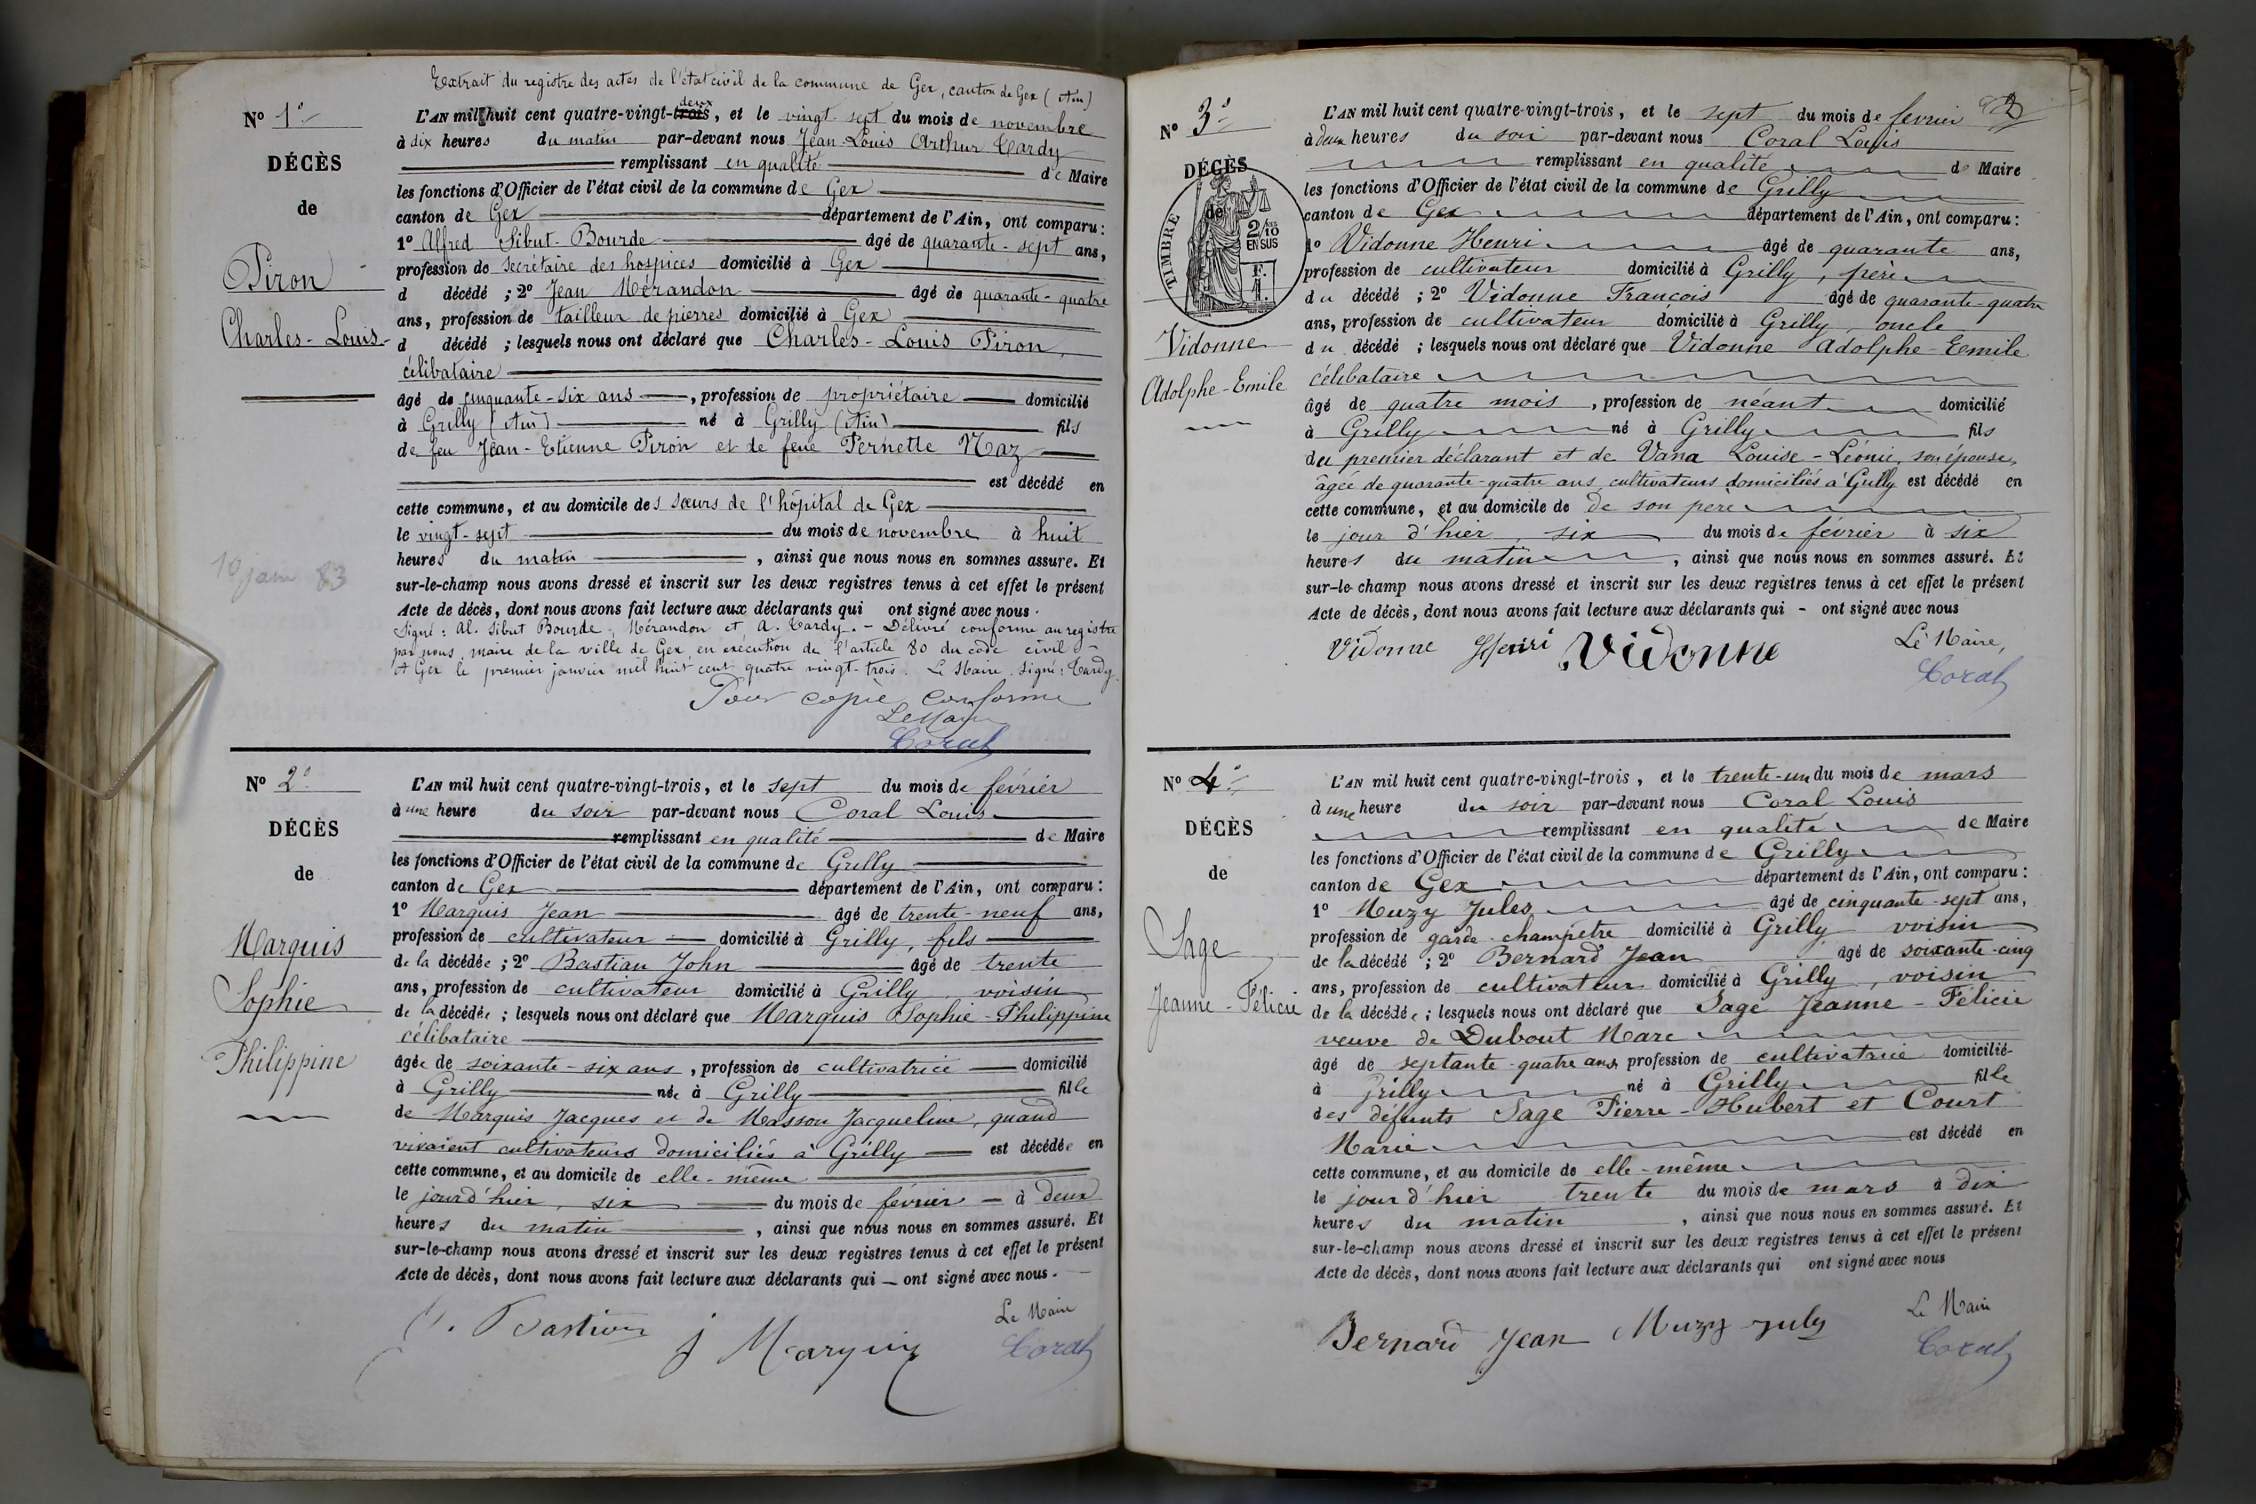 Extrait du registre des actes de l'état civil de la commune de Gex, canton de Gex (Ain)
N° 1
DÉCÈS
de
Piron
Charles-Louis
10 janv 83
deux
L'AN mil huit cent quatre-vingt-trois, et le vingt-sept du mois de novembre
à dix heures du matin par-devant nous Jean-Louis Arthur Tardy
remplissant en qualité de Maire
les fonctions d'Officier de l'état civil de la commune de Gex
canton de Gex département de l'Ain, ont comparu :
1° Alfred Sibut-Bourde âgé de quarante-sept ans,
profession de secrétaire des hospices domicilié à Gex
d décédé ; 2° Jean Mérandon âgé de quarante-quatre
ans, profession de tailleur de pierres domicilié à Gex
d décédé ; lesquels nous ont déclaré que Charles-Louis Piron,
célibataire
âgé de cinquante-six ans, profession de propriétaire domicilié
à Grilly (Ain) né à Grilly (Ain) fils
de feu Jean-Etienne Piron et de feue Pernette Maz
est décédé en
cette commune, et au domicile des sœurs de l'hôpital de Gex
le vingt-sept du mois de novembre à huit
heures du matin, ainsi que nous nous en sommes assuré. Et
sur-le-champ nous avons dressé et inscrit sur les deux registres tenus à cet effet le présent
Acte de décès, dont nous avons fait lecture aux déclarants qui ont signé avec nous.
Signé : Al. Sibut Bourde, Mérandon et A. Tardy. - Délivré conforme au registre
par nous, maire de la ville de Gex, en exécution de l'article 80 du code civil
A Gex le premier janvier mil huit cent quatre vingt-trois. Le Maire signé : Tardy.
Pour copie conforme
Le Maire
Coral
N° 2
DÉCÈS
de
Marquis
Sophie
Philippine
L'AN mil huit cent quatre-vingt-trois, et le sept du mois de février
à une heure du soir par-devant nous Coral Louis
remplissant en qualité de Maire
les fonctions d'Officier de l'état civil de la commune de Grilly
canton de Gex département de l'Ain, ont comparu :
1° Marquis Jean âgé de trente-neuf ans,
profession de cultivateur domicilié à Grilly, fils
de la décédée ; 2° Bastian John âgé de trente
ans, profession de cultivateur domicilié à Grilly voisin
de la décédée ; lesquels nous ont déclaré que Marquis Sophie-Philippine
célibataire
âgée de soixante-six ans, profession de cultivatrice domicilié
à Grilly née à Grilly fille
de Marquis Jacques et de Masson Jacqueline, quand
vivaient cultivateurs domiciliés à Grilly est décédée en
cette commune, et au domicile de elle-même
le jour d'hier, six du mois de février à deux
heures du matin, ainsi que nous nous en sommes assuré. Et
sur-le-champ nous avons dressé et inscrit sur les deux registres tenus à cet effet le présent
Acte de décès, dont nous avons fait lecture aux déclarants qui - ont signé avec nous.
Bastian
J Marquis
Le Maire
Coral
N° 3
DÉCÈS
de
TIMBRE
2/10
EN SUS
F.
1.
Vidonne
Adolphe-Emile
L'AN mil huit cent quatre-vingt-trois, et le sept du mois de février
à deux heures du soir par-devant nous Coral Louis
remplissant en qualité de Maire
les fonctions d'Officier de l'état civil de la commune de Grilly
canton de Gex département de l'Ain, ont comparu :
1° Vidonne Henri âgé de quarante ans,
profession de cultivateur domicilié à Grilly, père
du décédé ; 2° Vidonne François âgé de quarante-quatre
ans, profession de cultivateur domicilié à Grilly, oncle
du décédé ; lesquels nous ont déclaré que Vidonne Adolphe-Emile
célibataire
âgé de quatre mois, profession de néant domicilié
à Grilly né à Grilly fils
du premier déclarant et de Vana Louise-Léonie, son épouse,
âgée de quarante-quatre ans, cultivateurs domiciliés à Grilly est décédé en
cette commune, et au domicile de de son père
le jour d'hier, six du mois de février à six
heures du matin, ainsi que nous nous en sommes assuré. Et
sur-le-champ nous avons dressé et inscrit sur les deux registres tenus à cet effet le présent
Acte de décès, dont nous avons fait lecture aux déclarants qui - ont signé avec nous
Vidonne Henri Vidonne
Le Maire,
Coral
N° 4
DÉCÈS
de
Sage
Jeanne-Félicie
L'AN mil huit cent quatre-vingt-trois, et le trente-un du mois de mars
à une heure du soir par-devant nous Coral Louis
remplissant en qualité de Maire
les fonctions d'Officier de l'état civil de la commune de Grilly
canton de Gex département de l'Ain, ont comparu :
1° Muzy Jules âgé de cinquante-sept ans,
profession de garde-champêtre domicilié à Grilly voisin
de la décédé ; 2° Bernard Jean âgé de soixante-cinq
ans, profession de cultivateur domicilié à Grilly, voisin
de la décédée ; lesquels nous ont déclaré que Sage Jeanne-Félicie
veuve de Dubout Marc
âgé de septante-quatre ans, profession de cultivatrice domicilié
à Grilly né à Grilly fille
des défunts Sage Pierre-Hubert et Court
Marie est décédé en
cette commune, et au domicile de elle-même
le jour d'hier trente du mois de mars à dix
heures du matin, ainsi que nous nous en sommes assuré. Et
sur-le-champ nous avons dressé et inscrit sur les deux registres tenus à cet effet le présent
Acte de décès, dont nous avons fait lecture aux déclarants qui ont signé avec nous
Bernard Jean Muzy July
Le Maire
Coral